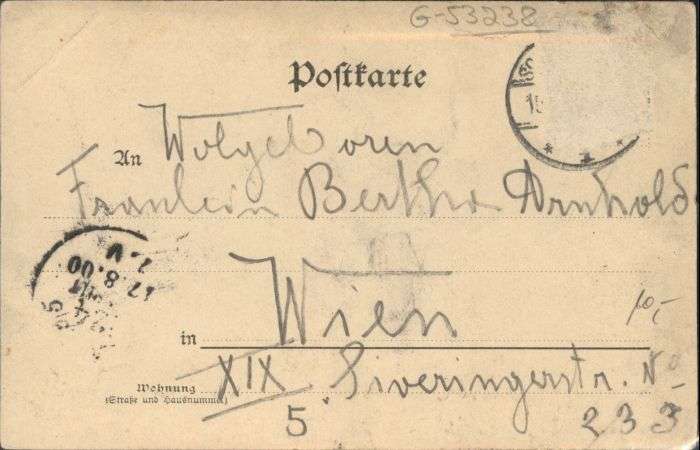 G-53238
Postkarte
An Wolgeboren
Fraulein Bertha Arnhold
17.8.00
in Wien
10,-
Wohnung
(Straße und Hausnummer)
XIX Siveringerstr. No
233
5